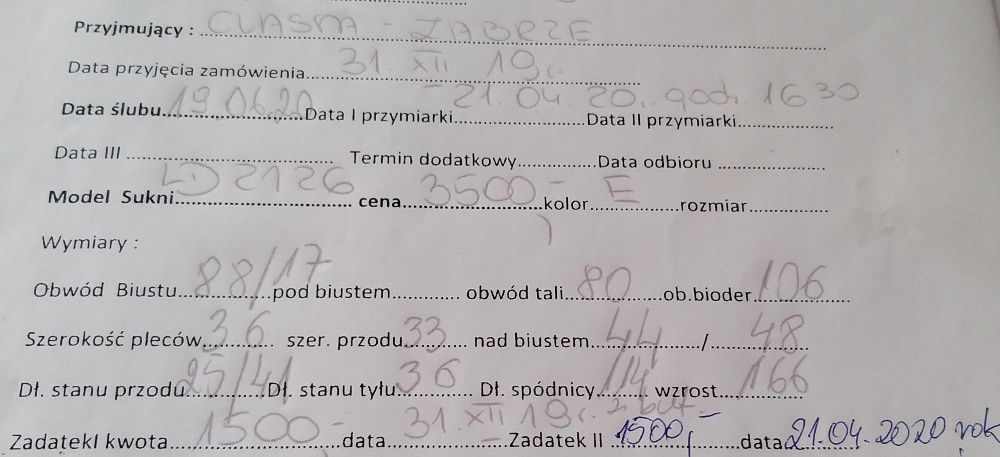 Przyjmujący : CLASNA - ZABRZE
Data przyjęcia zamówienia......31. XII 19 r.
Data ślubu...19.06.20...Data I przymiarki...21.04.20.. godz. 16 30 Data II przymiarki..................
Data III .................................. Termin dodatkowy..............Data odbioru ..................
Model Sukni...LD 2126... cena...3500,-...kolor...E...rozmiar...............
Wymiary :
Obwód Biustu...88/17...pod biustem............ obwód tali...80...ob.bioder...106...
Szerokość pleców...36... szer. przodu...33... nad biustem...44.../...48...
Dł. stanu przodu...25/41...Dł. stanu tyłu...36... Dł. spódnicy...114... wzrost...166...
ZadatekI kwota...1500-...data...31. XII 19 r....Zadatek II 1500,-...data 21.04.2020 rok